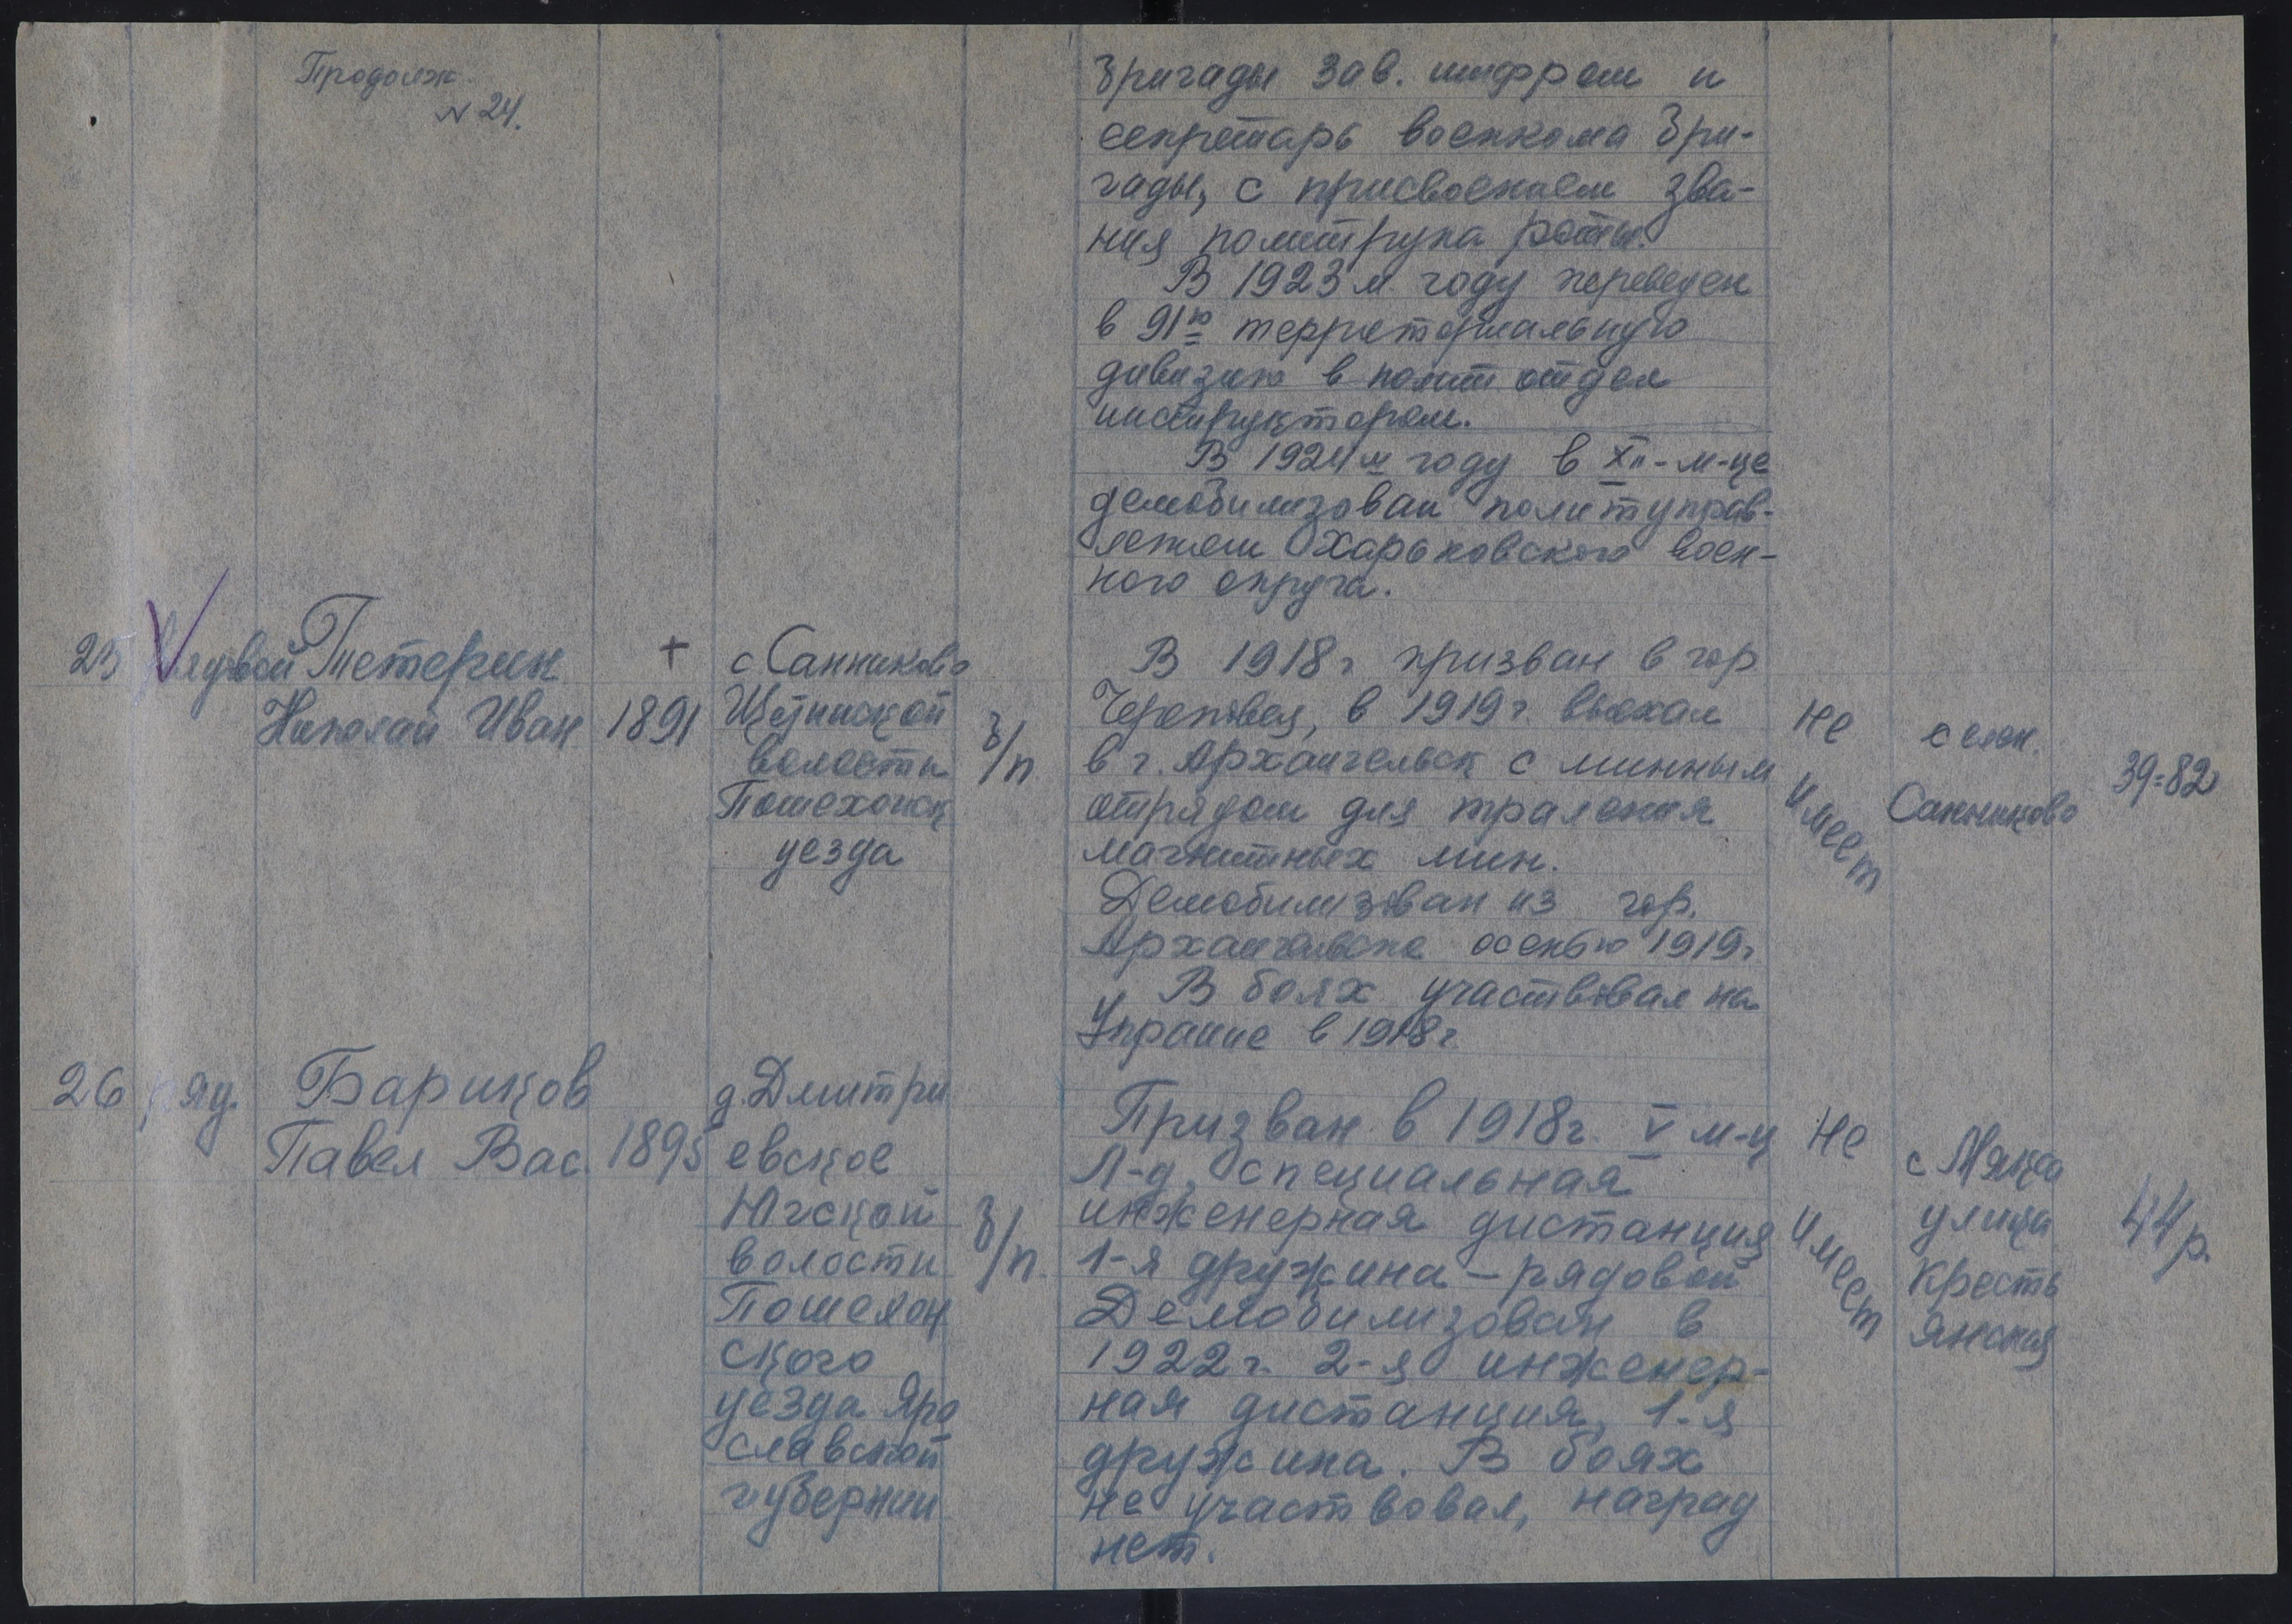 Продолж.
N 24.
бригады зав. шифром и
секретарь военкома бри-
гады, с присвоением зва-
ния политрука роты.
В 1923 м году переведен
в 91ю территориальную
дивизию в полит отдел
инструктором.
В 1924 м году в XII-м-це
демобилизован политуправ-
лением Харьковского воен-
ного округа.
25 рядовой Тетерин
Николай Иван
+
1891
с Санниково
Щетинской
волости
Пошехонск
уезда
б/п
В 1918 г. призван в гор
Череповец, в 1919 г. выехал
в г. Архангельск с минным
отрядом для траления
магнитных мин.
Демобилизован из гор.
Архангельска осенью 1919 г
В боях участвовал на
Украине в 1918 г
не
имеет
с елен.
Санниково
39=82
26 ряд. Бариков
Павел Вас. 1895
д. Дмитри
евское
Югской
волости
Пошехон
ского
уезда Яро
славской
губернии
б/п.
Призван в 1918 г. V м-ц
Л-д, специальная
инженерная дистанция
1-я дружина - рядовой
Демобилизован в
1922 г. 2-я инженер-
ная дистанция, 1-я
дружина. В боях
не участвовал, наград
нет.
не
имеет
с Мякса
улица
Кресть
янская
44 р.